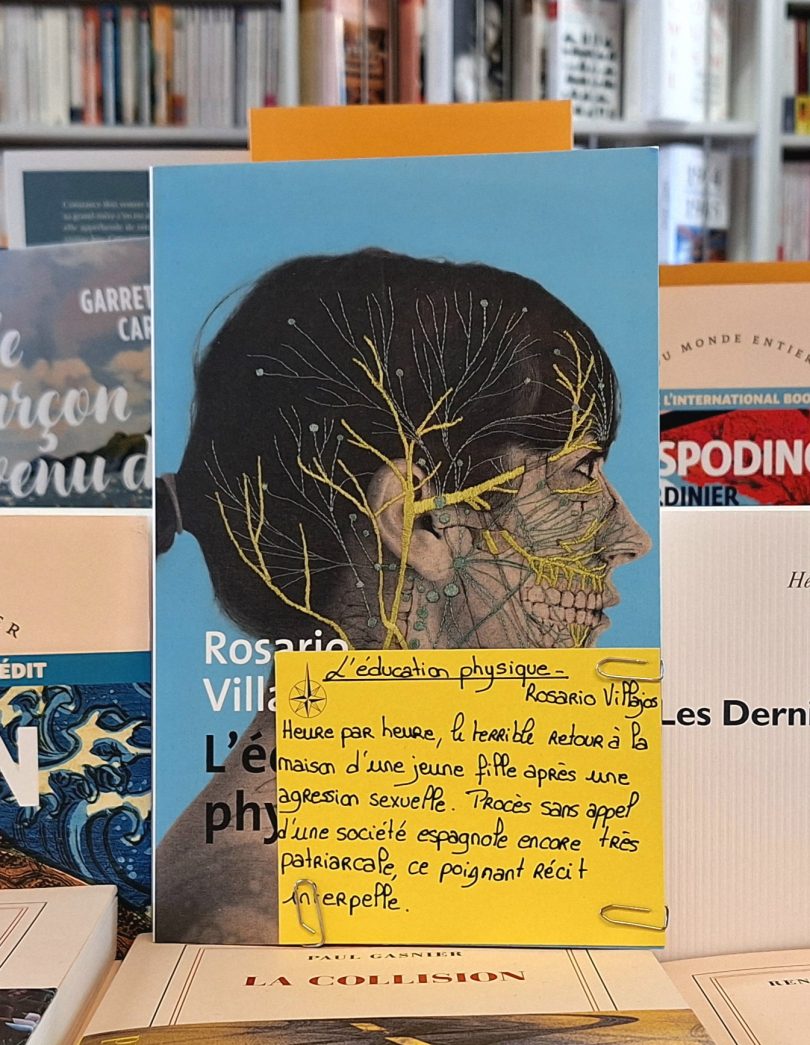 GARRET
CAR
DU MONDE ENTIER
L'INTERNATIONAL BOO
SPODINO
RDINIER
venu d
ÉDIT
N
Rosario
Villa
L'é
phy
L'éducation physique_
Rosario Villajos
Heure par heure, le terrible retour à la
maison d'une jeune fille après une
agression sexuelle. Procès sans appel
d'une société espagnole encore très
patriarcale, ce poignant récit
interpelle.
Les Derni
PAUL GASNIER
LA COLLISION
REN